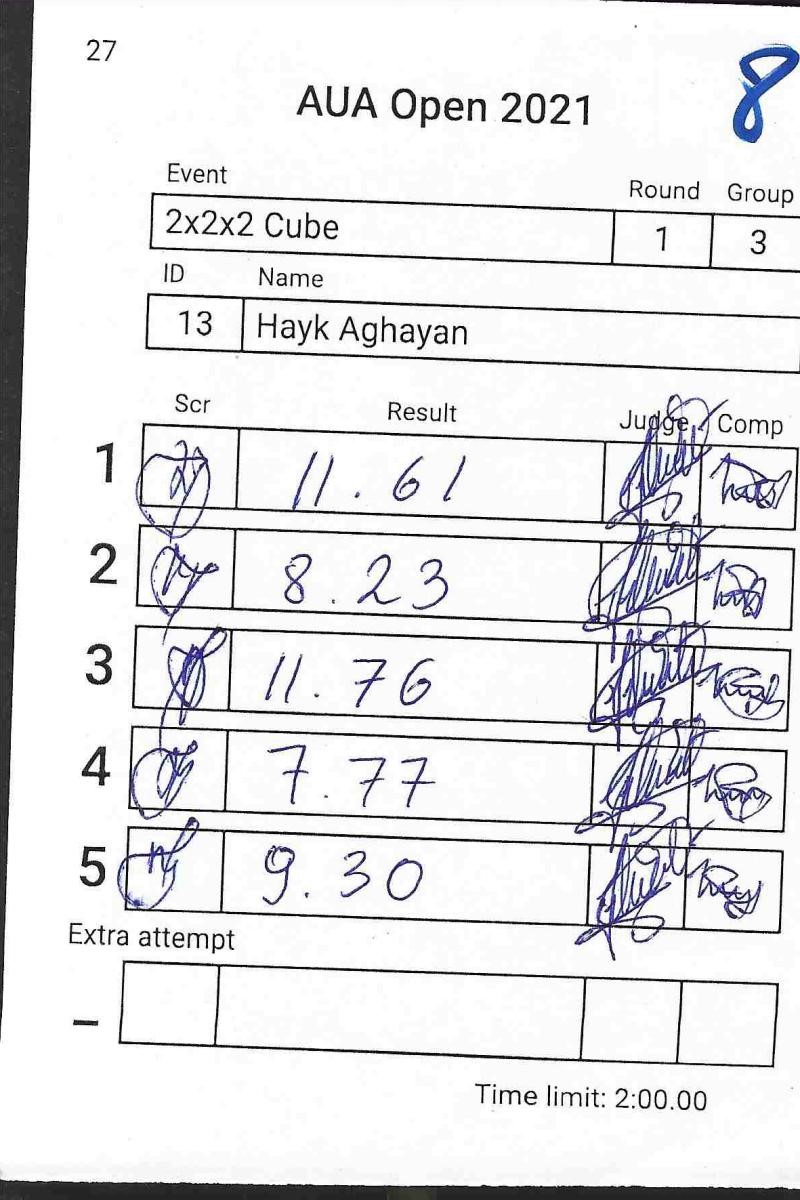 27
8
AUA Open 2021
Event Round Group
2x2x2 Cube 1 3
ID Name
13 Hayk Aghayan
Scr Result Judge Comp
1 11.61
2 8.23
3 11.76
4 7.77
5 9.30
Extra attempt
–
Time limit: 2:00.00